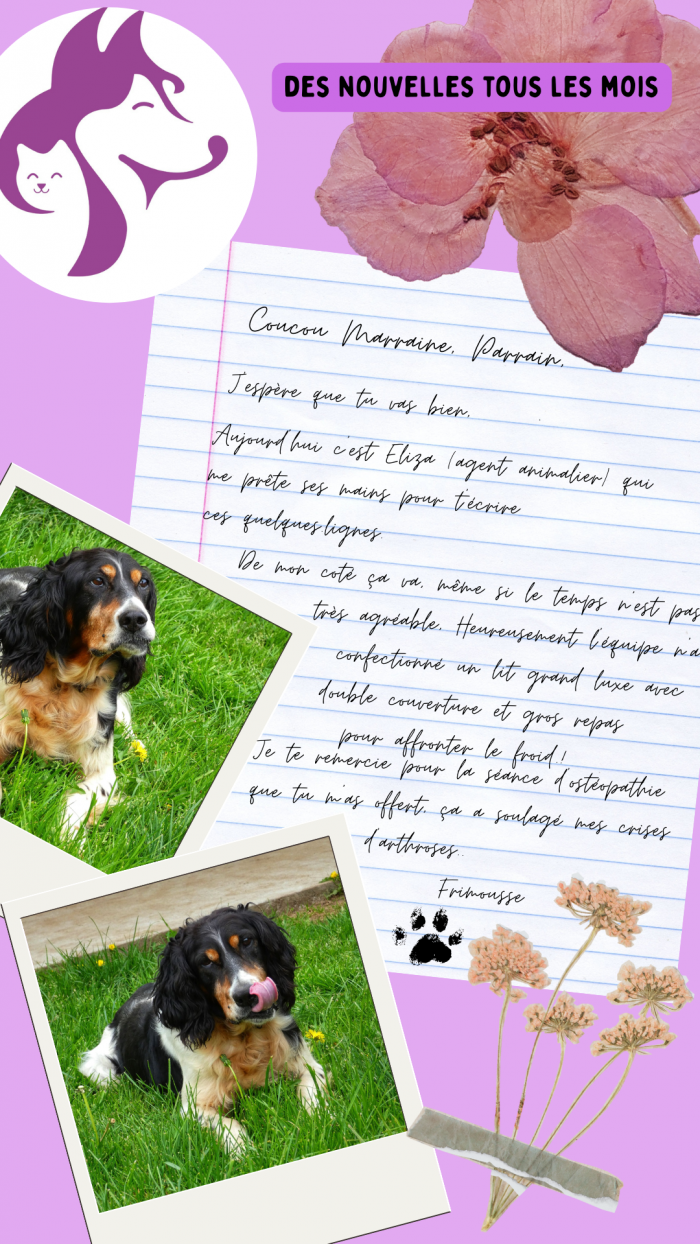 DES NOUVELLES TOUS LES MOIS
Coucou Marraine, Parrain,
J'espère que tu vas bien,
Aujourd'hui c'est Eliza (agent animalier) qui
me prête ses mains pour t'écrire
ces quelques lignes.
De mon coté ça va, même si le temps n'est pas
très agréable. Heureusement l'équipe n'a
confectionné un lit grand luxe avec
double couverture et gros repas
pour affronter le froid !
Je te remercie pour la séance d'ostéopathie
que tu m'as offert, ça a soulagé mes crises
d'arthroses..
Frimousse